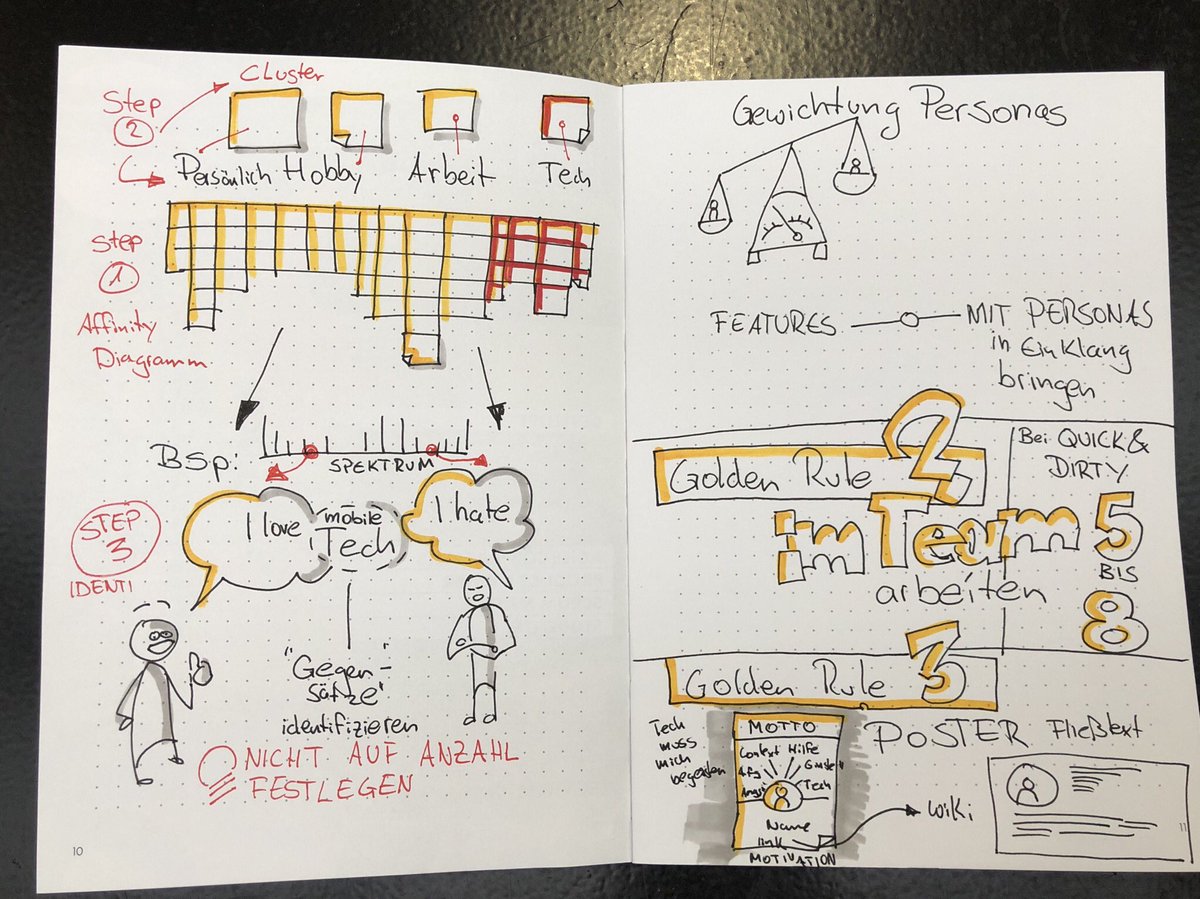 Cluster
Step
2
Persönlich Hobby Arbeit Tech
Step
1
Affinity
Diagramm
Bsp:
SPEKTRUM
I love
mobile
Tech
I hate
STEP
3
IDENTI
"Gegen-
sätze"
identifizieren
NICHT AUF ANZAHL
FESTLEGEN
10
Gewichtung Personas
FEATURES MIT PERSONAS
in EinKlang
bringen
Golden Rule 2
im Team
arbeiten
Bei QUICK &
DIRTY
5
BIS
8
Golden Rule 3
Tech
muss
mich
begeistern
MOTTO
Context Hilfe
Tech
Name
link
MOTIVATION
POSTER Fließtext
Wiki
11